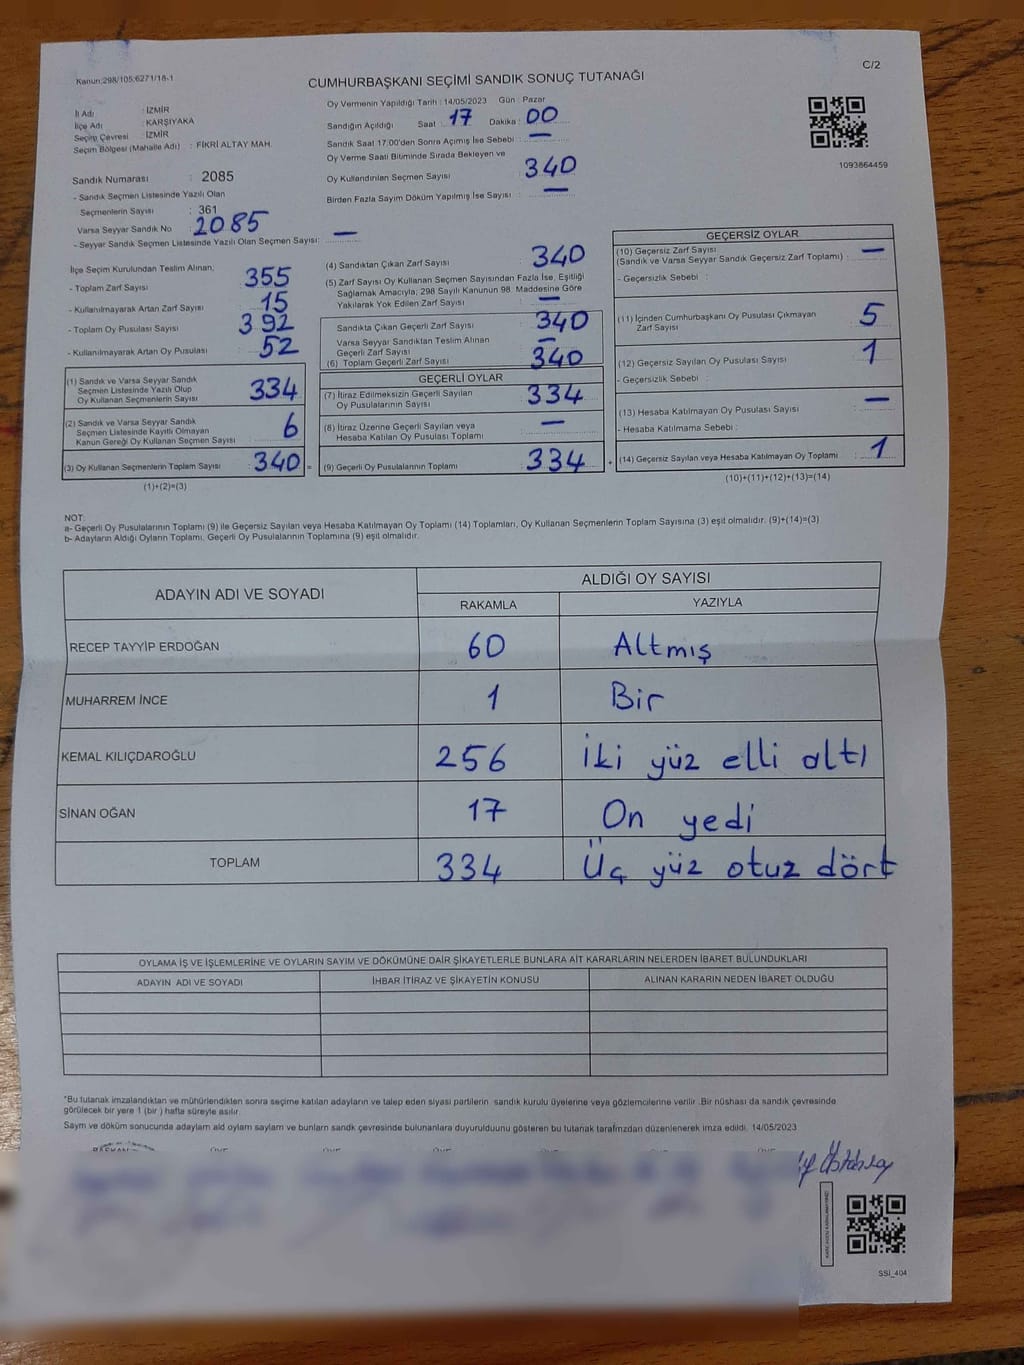 Kanun:298/105;6271/18-1
CUMHURBAŞKANI SEÇİMİ SANDIK SONUÇ TUTANAĞI
C/2
İl Adı : İZMİR
İlçe Adı : KARŞIYAKA
Seçim Çevresi : İZMİR
Seçim Bölgesi (Mahalle Adı) : FİKRİ ALTAY MAH.
Sandık Numarası : 2085
- Sandık Seçmen Listesinde Yazılı Olan
Seçmenlerin Sayısı : 361
Varsa Seyyar Sandık No : 2085
- Seyyar Sandık Seçmen Listesinde Yazılı Olan Seçmen Sayısı: —
Oy Vermenin Yapıldığı Tarih : 14/05/2023 Gün : Pazar
Sandığın Açıldığı Saat : 17 Dakika : 00
Sandık Saat 17:00'den Sonra Açımış İse Sebebi : —
Oy Verme Saati Bitiminde Sırada Bekleyen ve
Oy Kullandırılan Seçmen Sayısı : 340
Birden Fazla Sayım Döküm Yapılmış İse Sayısı : —
1093864459
İlçe Seçim Kurulundan Teslim Alınan;
- Toplam Zarf Sayısı : 355
- Kullanılmayarak Artan Zarf Sayısı : 15
- Toplam Oy Pusulası Sayısı : 392
- Kullanılmayarak Artan Oy Pusulası : 52
(1) Sandık ve Varsa Seyyar Sandık
Seçmen Listesinde Yazılı Olup
Oy Kullanan Seçmenlerin Sayısı : 334
(2) Sandık ve Varsa Seyyar Sandık
Seçmen Listesinde Kayıtlı Olmayan
Kanun Gereği Oy Kullanan Seçmen Sayısı : 6
(3) Oy Kullanan Seçmenlerin Toplam Sayısı : 340 =
(1)+(2)=(3)
(4) Sandıktan Çıkan Zarf Sayısı : 340
(5) Zarf Sayısı Oy Kullanan Seçmen Sayısından Fazla İse, Eşitliği
Sağlamak Amacıyla; 298 Sayılı Kanunun 98. Maddesine Göre
Yakılarak Yok Edilen Zarf Sayısı : —
Sandıkta Çıkan Geçerli Zarf Sayısı : 340
Varsa Seyyar Sandıktan Teslim Alınan
Geçerli Zarf Sayısı : —
(6) Toplam Geçerli Zarf Sayısı : 340
GEÇERLİ OYLAR
(7) İtiraz Edilmeksizin Geçerli Sayılan
Oy Pusulalarının Sayısı : 334
(8) İtiraz Üzerine Geçerli Sayılan veya
Hesaba Katılan Oy Pusulası Toplamı : —
(9) Geçerli Oy Pusulalarının Toplamı : 334 +
GEÇERSİZ OYLAR
(10) Geçersiz Zarf Sayısı
(Sandık ve Varsa Seyyar Sandık Geçersiz Zarf Toplamı) : —
- Geçersizlik Sebebi :
(11) İçinden Cumhurbaşkanı Oy Pusulası Çıkmayan
Zarf Sayısı : 5
(12) Geçersiz Sayılan Oy Pusulası Sayısı : 1
- Geçersizlik Sebebi :
(13) Hesaba Katılmayan Oy Pusulası Sayısı : —
- Hesaba Katılmama Sebebi :
(14) Geçersiz Sayılan veya Hesaba Katılmayan Oy Toplamı : 1
(10)+(11)+(12)+(13)=(14)
NOT:
a- Geçerli Oy Pusulalarının Toplamı (9) ile Geçersiz Sayılan veya Hesaba Katılmayan Oy Toplamı (14) Toplamları, Oy Kullanan Seçmenlerin Toplam Sayısına (3) eşit olmalıdır. (9)+(14)=(3)
b- Adayların Aldığı Oyların Toplamı, Geçerli Oy Pusulalarının Toplamına (9) eşit olmalıdır.
ADAYIN ADI VE SOYADI ALDIĞI OY SAYISI
RAKAMLA YAZIYLA
RECEP TAYYİP ERDOĞAN 60 Altmış
MUHARREM İNCE 1 Bir
KEMAL KILIÇDAROĞLU 256 İki yüz elli altı
SİNAN OĞAN 17 On yedi
TOPLAM 334 Üç yüz otuz dört
OYLAMA İŞ VE İŞLEMLERİNE VE OYLARIN SAYIM VE DÖKÜMÜNE DAİR ŞİKAYETLERLE BUNLARA AİT KARARLARIN NELERDEN İBARET BULUNDUKLARI
ADAYIN ADI VE SOYADI İHBAR İTİRAZ VE ŞİKAYETİN KONUSU ALINAN KARARIN NEDEN İBARET OLDUĞU
"Bu tutanak imzalandıktan ve mühürlendikten sonra seçime katılan adayların ve talep eden siyasi partilerin sandık kurulu üyelerine veya gözlemcilerine verilir .Bir nüshası da sandık çevresinde
görülecek bir yere 1 (bir ) hafta süreyle asılır.
Sayım ve döküm sonucunda adaylam ald oylam saylam ve bunlarn sandk çevresinde bulunanlara duyurulduunu gösteren bu tutanak tarafımzdan düzenlenerek imza edildi. 14/05/2023
SSİ_404